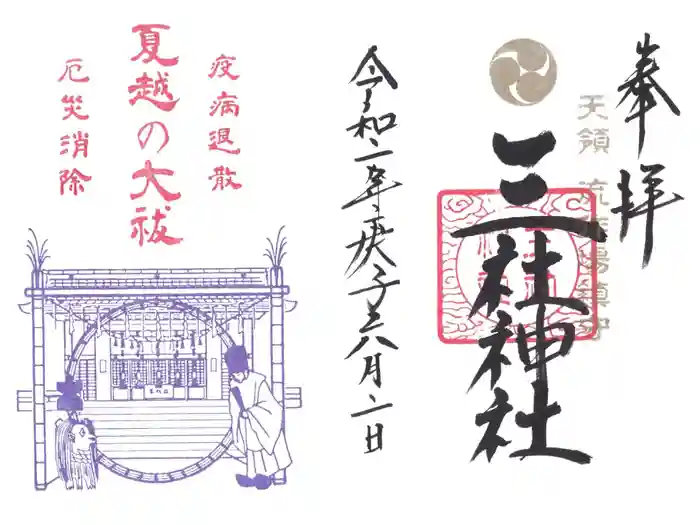 奉拝
天領 流作場鎮守
三社神社
令和二年庚子六月二日
疫病退散
夏越の大祓
厄災消除